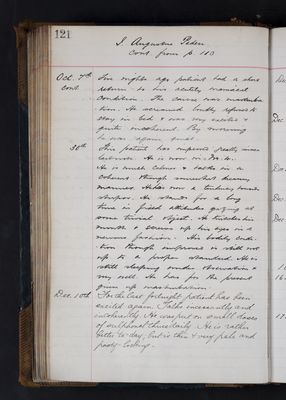 121
J. Augustus Peden
Cont from p 110
Oct. 7th
Cont
Five nights ago patient had a short
return to his acutely maniacal
condition. The cause was masturba-
tion. He screamed loudly refused to
stay in bed & was very excited &
quite incoherent. By morning
he was again quiet.
30th
This patient has improved greatly since
last note. He is now in
He is much calmer & talks in a
coherent though somewhat dreamy
manner. He has now a tendency towards
stupor. He stands for a long
time in fixed attitudes gazing at
some trivial object. He twitches his
mouth & screws up his eyes in a
nervous fashion. His bodily condi-
tion though improved is still not
up to a proper standard. He is
still sleeping under observation &
very well. He has for the present
given up masturbation.
Dec. 10th
For the last fortnight patient has been
excited again. Talks incessantly and
incoherently. He was put on small doses
of sulphonal thrice daily. He is rather
better to-day, but is thin & very pale and
pasty looking.
Dec